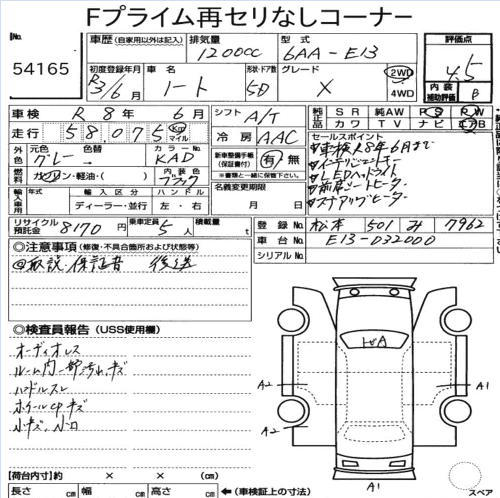 Fプライム再セリなしコーナー
No. 54165
車歴 (自家用以外は記入) 排気量 1200cc 型式 6AA-E13 評価点 4.5
初度登録年月 R3/6月 車名 ノート 形状・ドア数 5D グレード X 2WD 4WD 内装補助評価 B
車検 R 8年 6月 シフト A/T 純正品 SR 純AW PS PW
走行 58075 Km マイル 冷房 AAC カワ TV ナビ エアB
外色 元色 グレー 色替 カラーNo. KAD 新車整備手帳(保証書付) 有・無 セールスポイント
燃料 ガソリン・軽油・( ) 内装色 ブラック ※後日送付の場合も一緒に保管してください。
車検R8年6月まで
インテリジェントキー
LEDヘッドライト
前席シートヒーター
ステアリングヒーター
輸入車用 年式 輸入区分 ハンドル ディーラー・並行 左・右 名義変更期限 月 日
リサイクル預託金 8170円 乗車定員 5人 積載量 t 登録No. 松本 501 み 7962
車台No. E13-032000
シリアルNo.
◎注意事項 (修復・不具合箇所および状態等)
@取説・保証書 後送
◎検査員報告 (USS使用欄)
オーディオレス
ルーム内一部汚れ、キズ
ハンドルスレ
ホイールcpキズ
小キズ、小凹
トムA
A2
A1
A2
A1
スペア
【荷台内寸】約 × × (cm)
長さ cm 幅 cm 高さ cm ←(車検証上の寸法)